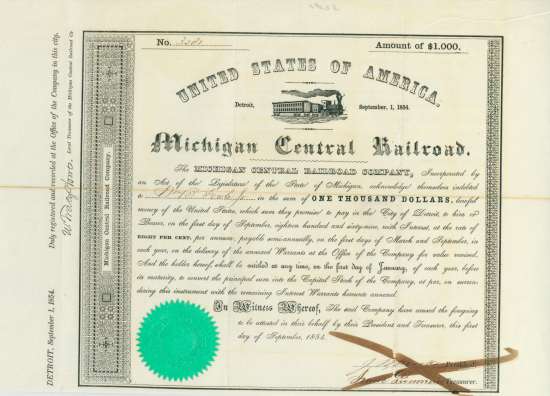 No.
Amount of $1.000.
UNITED STATES OF AMERICA.
Detroit, September, 1, 1854.
Michigan Central Railroad.
The MICHIGAN CENTRAL RAILROAD COMPANY, Incorporated by
an Act of the Legislature of the State of Michigan acknowledge themselves indebted
to in the sum of ONE THOUSAND DOLLARS, lawful
money of the United States, which sum they promise to pay in the City of Detroit to him or
Bearer, on the first day of September, eighteen hundred and sixty-nine, with Interest, at the rate of
EIGHT PER CENT, per annum, payable semi-annually, on the first days of March and September, in
each year, on the delivery of the annexed Warrants at the Office of the Company for value received.
And the holder hereof shall be entitled at any time, on the first day of January, of each year, before
its maturity, to convert the principal sum into the Capital Stock of the Company, at par, on surren-
dering this instrument with the remaining Interest Warrants hereunto annexed.
In Witness Whereof, The said Company have caused the foregoing
to be attested in their behalf by their President and Treasurer, this first
day of September, 1854.
President.
Treasurer.
Michigan Central Railroad Company.
Duly registered and recorded at the Office of the Company in this city.
Local Treasurer of the Michigan Central Railroad Co
DETROIT, September 1, 1854.